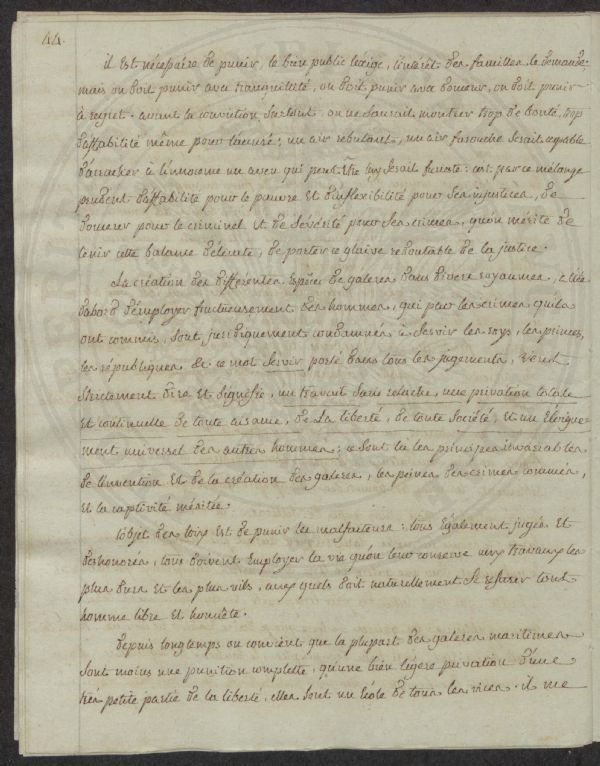 44.
il est nécessaire de punir, le bien public l'exige, l'intérêt des familles le demande
mais on doit punir avec tranquilité, on doit punir avec douceur, on doit punir
à regret. avant la conviction surtout on ne saurait montrer trop de bonté, trop
d'affabilité même pour l'accusé; un air rebutant, un air farouche serait capable
d'arracher à l'innocence un aveu qui peut être lui serait funeste: c'est par ce mélange
prudent d'affabilité pour le pauvre et d'inflexibilité pour ses injustices, de
douceur pour le criminel et de sévérité pour ses crimes, qu'on mérite de
tenir cette balance délicate, de porter ce glaive redoutable de la justice.
La création des différentes espèces de galeres dans divers royaumes, a été
d'abord d'employer fructueusement des hommes, qui pour les crimes qu'ils
ont commis, sont juridiquement condamnés à servir les roys, les princes,
les républiques, et ce mot servir porté dans tous les jugements, veut
strictement dire et signifie, un travail sans relache, une privation totale
et continuelle de toute aisance, de la liberté, de toute société, et un éloigne-
ment universel des autres hommes; ce sont là les principes invariables
de l'invention et de la création des galeres, les peines des crimes commis,
et la captivité méritée.
L'objet des loix est de punir les malfacteurs: tous également jugés et
deshonorés, tous doivent employer la vie qu'on leur conserve aux travaux les
plus durs et les plus vils, aux quels doit naturellement se refuser tout
homme libre et honnête.
depuis longtemps on convient que la plupart des galeres maritimes
sont moins une punition complette, qu'une bien légere privation d'une
très petite partie de la liberté, elles sont un école de tous les vices. il me